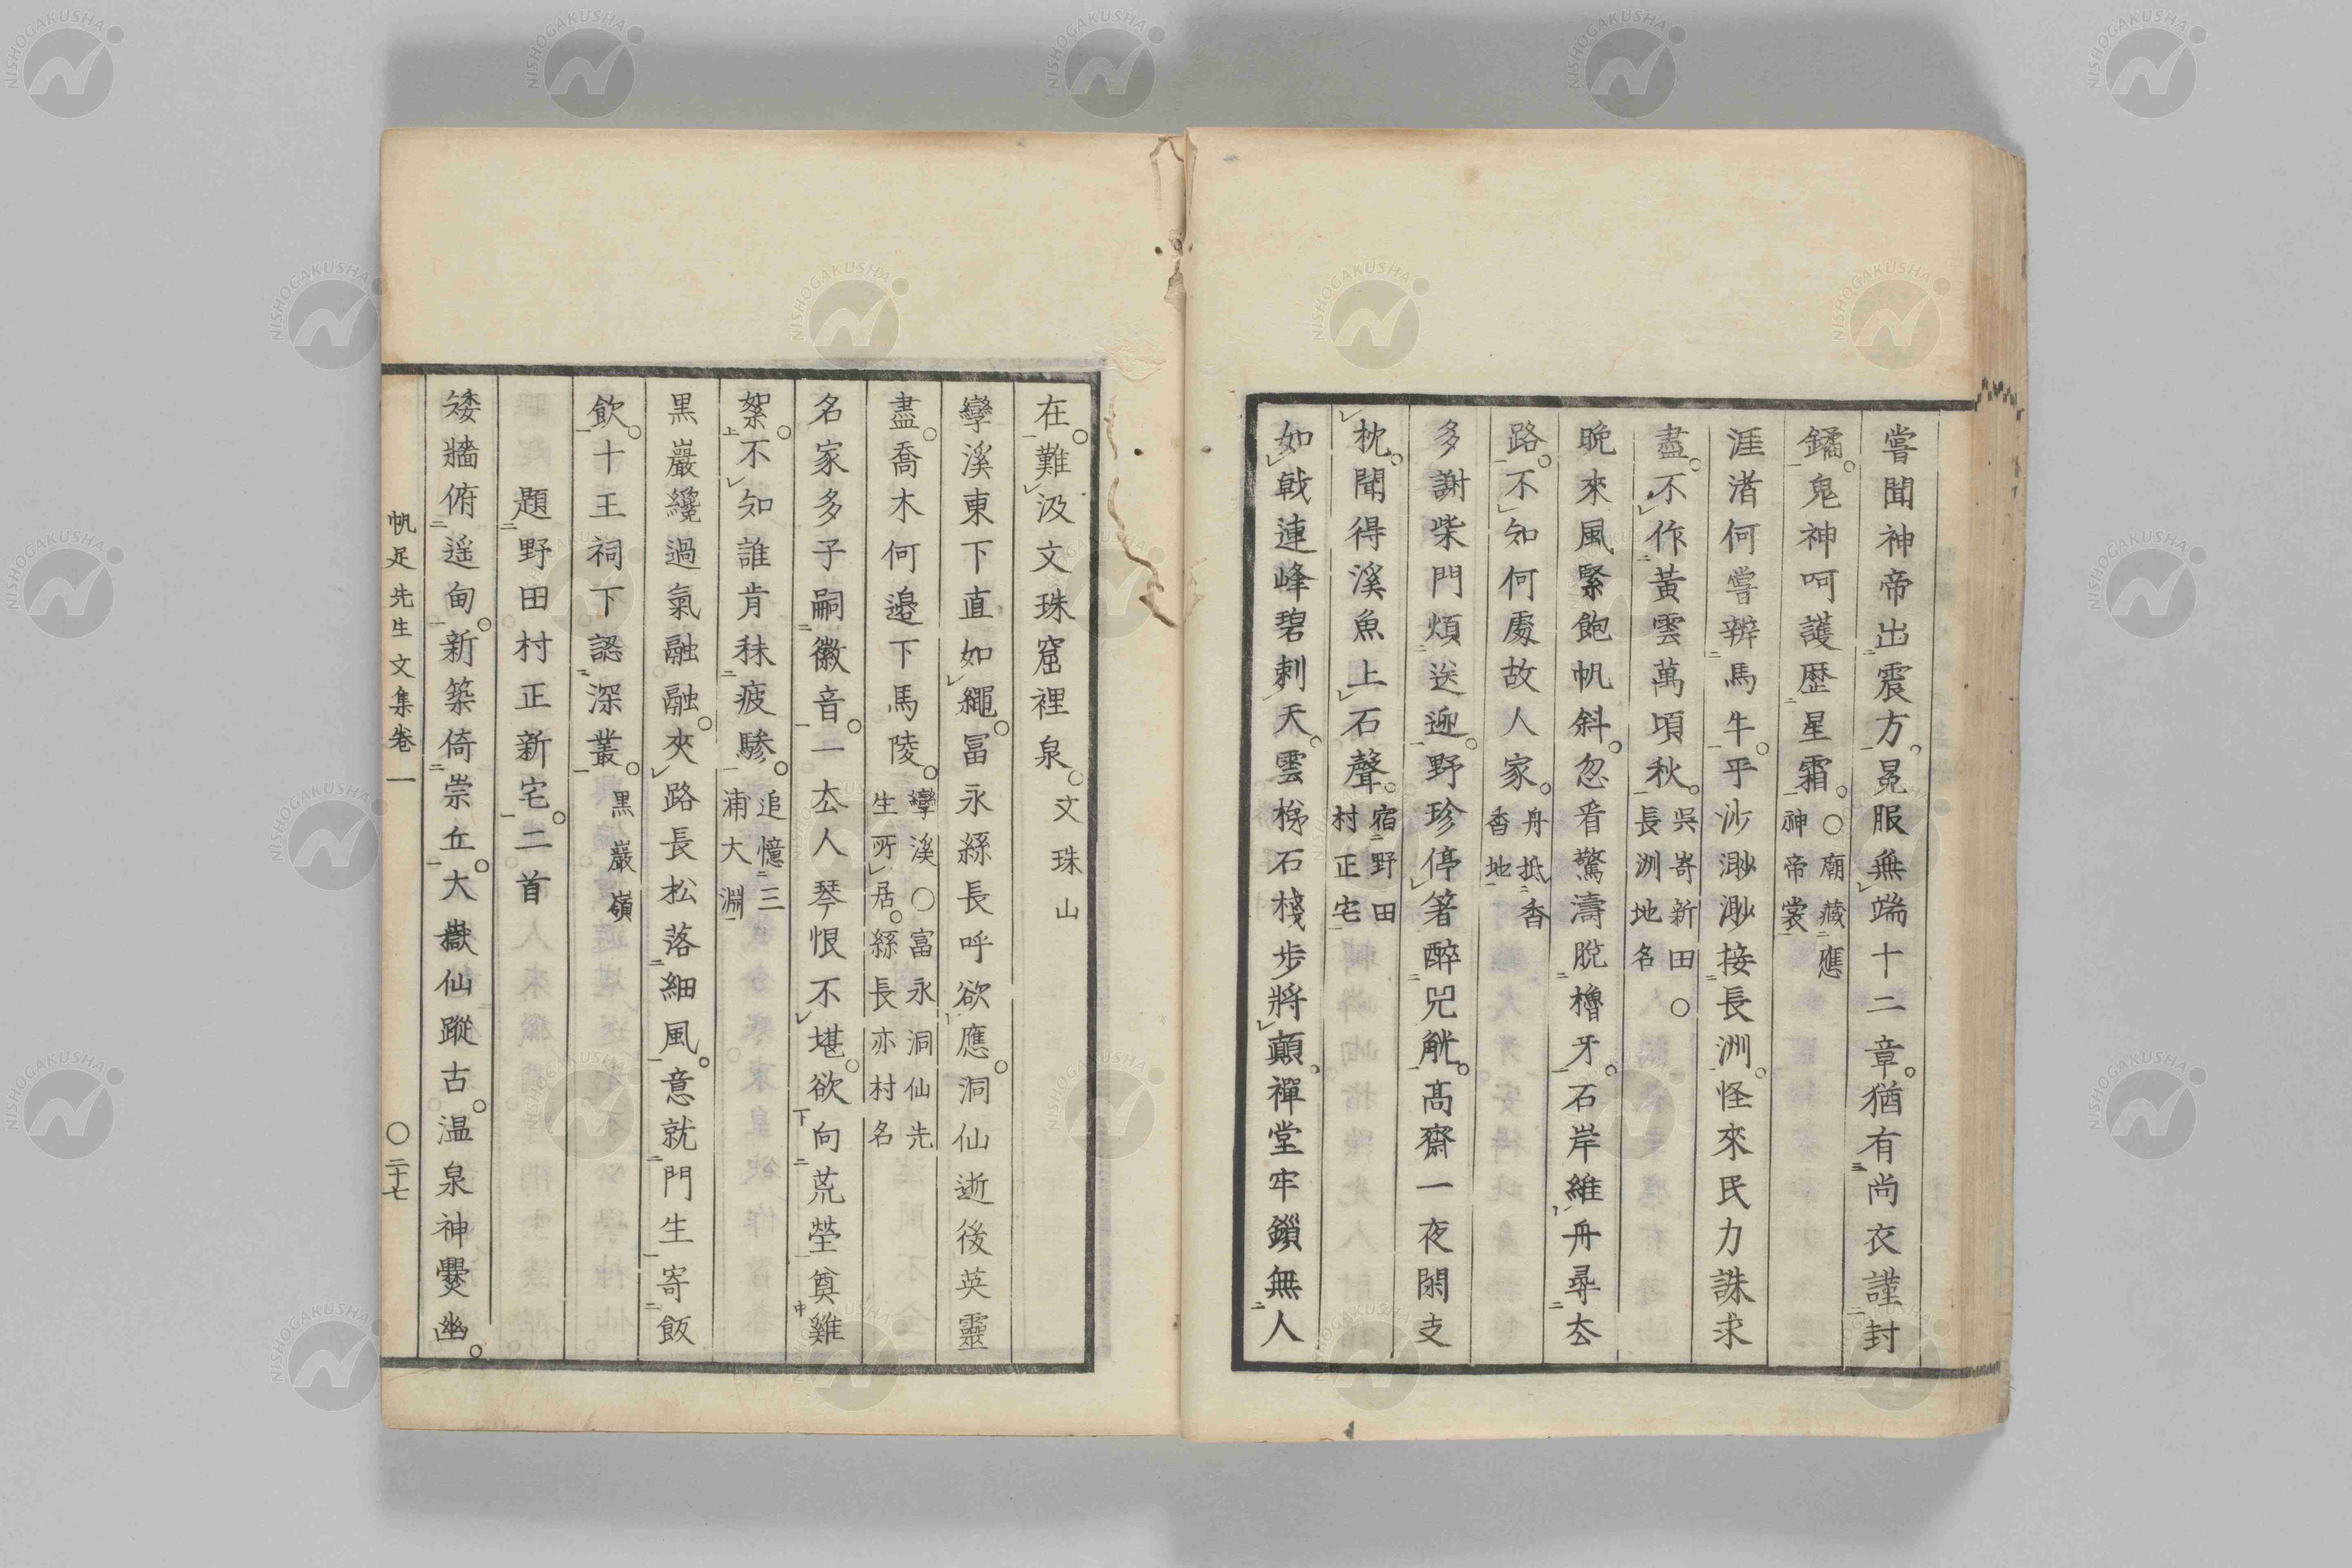 嘗聞神帝出震方。冕服無端十二章。猶有尚衣謹封
鐍。鬼神呵護歴星霜。○廟藏應神帝裳
涯渚何嘗辨馬牛。平沙渺渺接長洲。怪來民力誅求
盡。不作黃雲萬頃秋。吳嵜新田○長洲地名
晩來風緊飽帆斜。忽看驚濤脫櫓牙。石岸維舟尋去
路。不知何處故人家。舟抵香香地
多謝柴門煩送迎。野珍停箸醉兕觥。髙齋一夜閑支
枕。聞得溪魚上石聲。宿野田村正宅
如戟連峰碧刺天。雲梯石棧步將顛。禪堂牢鎖無人
在。難汲文珠窟裡泉。文珠山
孿溪東下直如繩。冨永縣長呼欲應。洞仙逝後英靈
盡。喬木何邊下馬陵。孿溪○富永洞仙先生所居。縣長亦村名
名家多子嗣徽音。一去人琴恨不堪。欲向荒塋奠雞
絮。不知誰肯秣疲驂。追憶三浦大淵
黒巖纔過氣融融。夾路長松落細風。意就門生寄飯
飲。十王祠下認深叢。黒巖嶺
題野田村正新宅。二首
矮牆俯遥甸。新築倚崇丘。大嶽仙蹤古。温泉神爨幽。
帆足先生文集卷一
○二十七
NISHOGAKUSHA